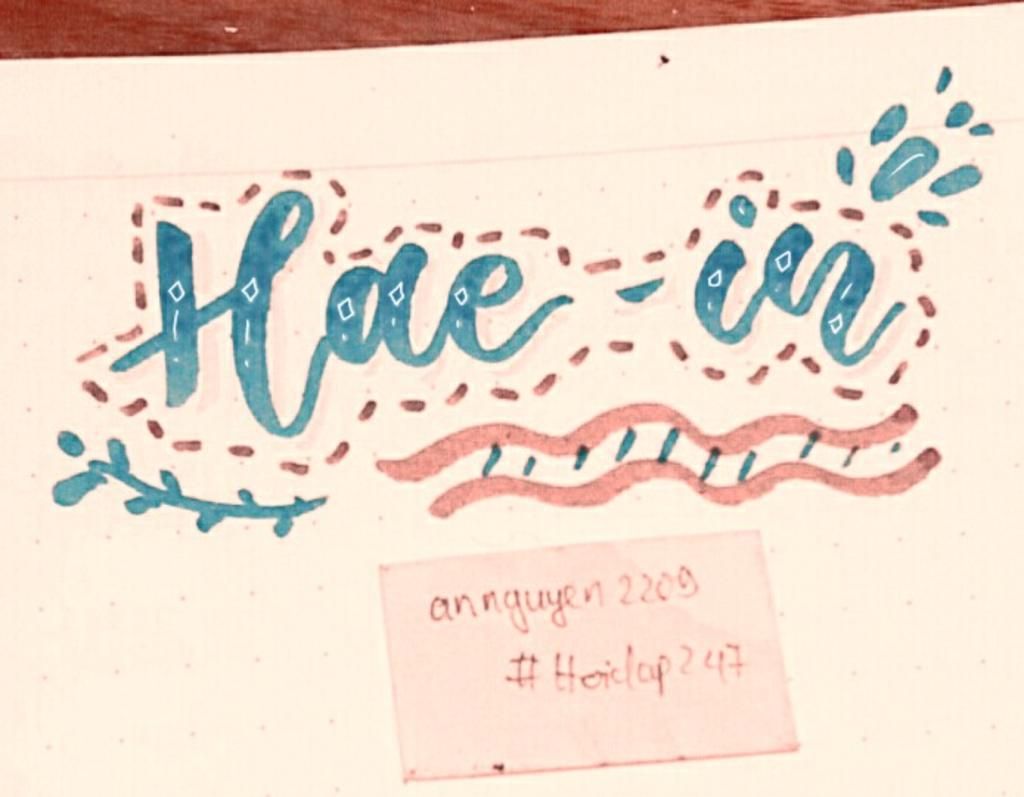 Hae-in
annguyen2209
#Hoidap247